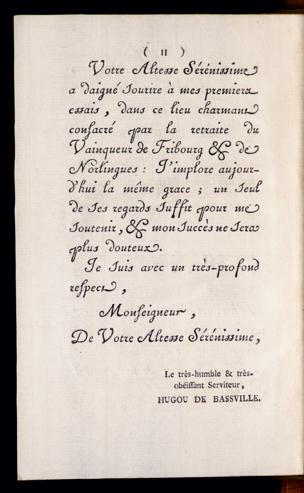 ( II )
Votre Altesse Sérénissime
a daigné sourire à mes premiers
essais, dans ce lieu charmant
consacré par la retraite du
Vainqueur de Fribourg & de
Norlingues : J'implore aujour-
d'hui la même grace ; un seul
de ses regards suffit pour me
soutenir, & mon succès ne sera
plus douteux.
Je suis avec un très-profond
respect,
Monseigneur,
De Votre Altesse Sérénissime,
Le très-humble & très-
obéissant Serviteur,
HUGOU DE BASSVILLE.